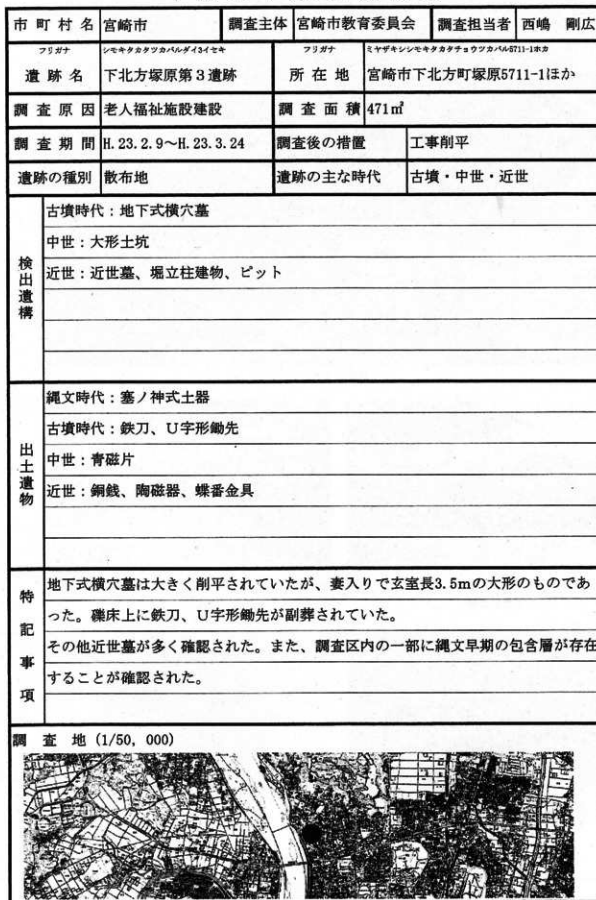 市町村名 宮崎市 調査主体 宮崎市教育委員会 調査担当者 西嶋 剛広
フリガナ シモキタカタツカバルダイ3イセキ フリガナ ミヤザキシシモキタカタチョウツカバル5711-1ホカ
遺跡名 下北方塚原第3遺跡 所在地 宮崎市下北方町塚原5711-1ほか
調査原因 老人福祉施設建設 調査面積 471㎡
調査期間 H.23.2.9～H.23.3.24 調査後の措置 工事削平
遺跡の種別 散布地 遺跡の主な時代 古墳・中世・近世
検出遺構
古墳時代：地下式横穴墓
中世：大形土坑
近世：近世墓、堀立柱建物、ピット
出土遺物
縄文時代：塞ノ神式土器
古墳時代：鉄刀、U字形鋤先
中世：青磁片
近世：銅銭、陶磁器、蝶番金具
特記事項
地下式横穴墓は大きく削平されていたが、妻入りで玄室長3.5mの大形のものであ
った。礫床上に鉄刀、U字形鋤先が副葬されていた。
その他近世墓が多く確認された。また、調査区内の一部に縄文早期の包含層が存在
することが確認された。
調査地(1/50,000)